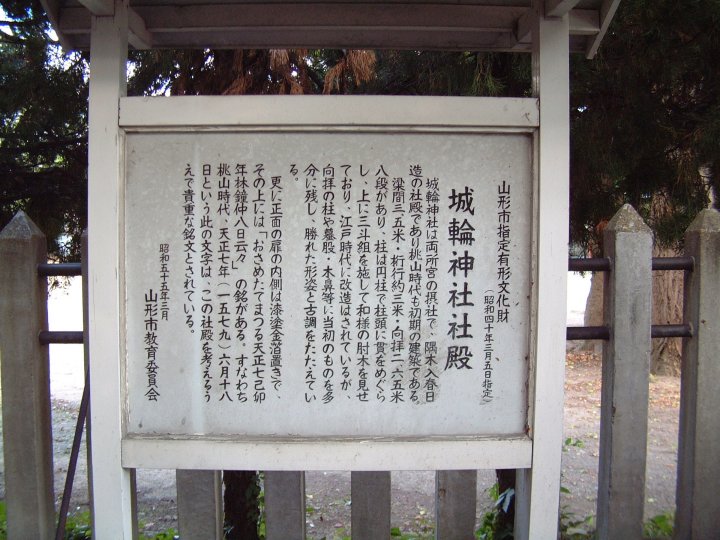 山形市指定有形文化財
(昭和四十年三月五日指定)
城輪神社社殿
城輪神社は両所宮の摂社で、隅木入春日
造の社殿であり桃山時代も初期の建築である。
梁間三.五米・桁行約三米・向拝二.六五米
八段があり、柱は円柱で柱頭に貫をめぐら
し、上に三斗組を施して和様の肘木を見せ
ており、江戸時代に改造はされているが、
向拝の柱や蟇股・木鼻等に当初のものを多
分に残し、勝れた形姿と古調をたたえてい
る。
更に正面の扉の内側は漆塗金箔置きで、
その上には「おさめたてまつる天正七己卯
年林鐘仲八日云々」の銘がある。すなわち
桃山時代、天正七年(一五七九)六月十八
日という此の文字は、この社殿を考えるう
えで貴重な銘文とされている。
昭和五十五年三月
山形市教育委員会